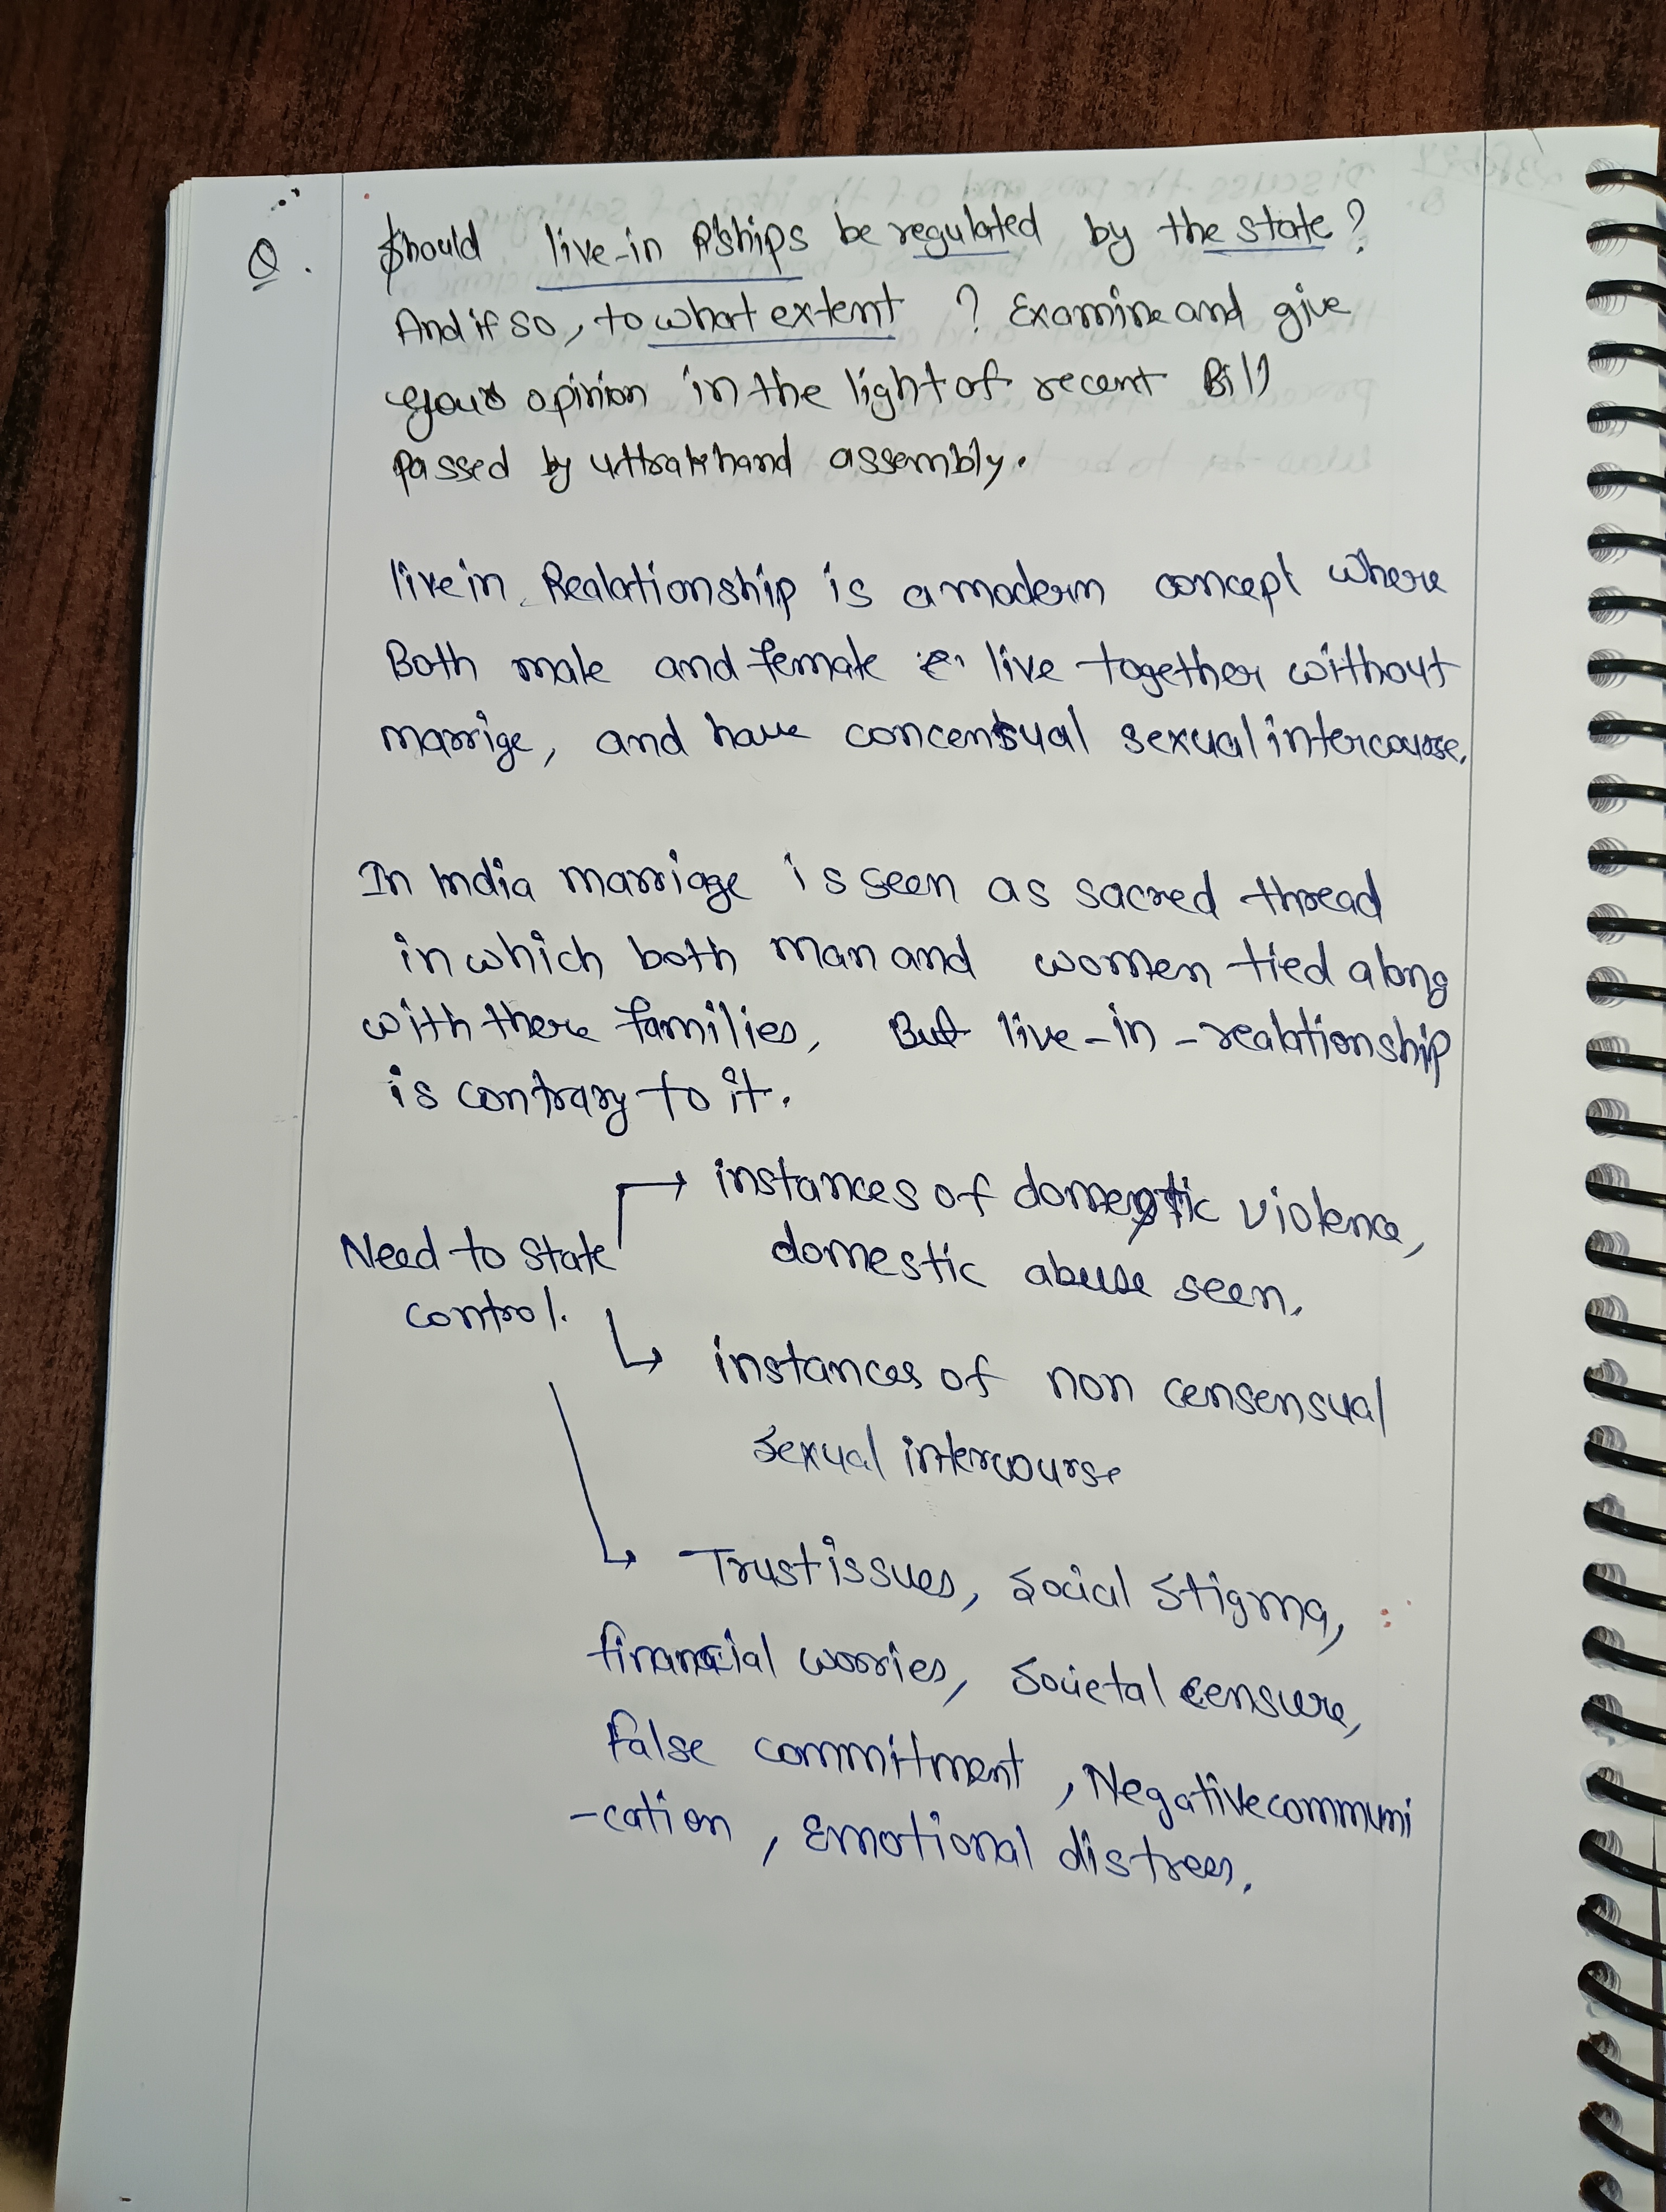 Q. Should live-in R'ships be regulated by the state?
And if so, to what extent ? Examine and give
your opinion in the light of recent Bill
passed by uttrakhand assembly.
live in Realationship is a modern concept where
Both male and female live together without
marrige, and have concensual sexual intercourse.
In India marriage is seen as sacred thread
in which both man and women tied along
with there families, But live-in-realationship
is contrary to it.
→ instances of domestic violence,
domestic abuse seen.
Need to state
control.
→ instances of non censensual
sexual intercourse
→ Trust issues, social stigma,
financial worries, societal censure,
false commitment, Negative communi
-cation, Emotional distress.